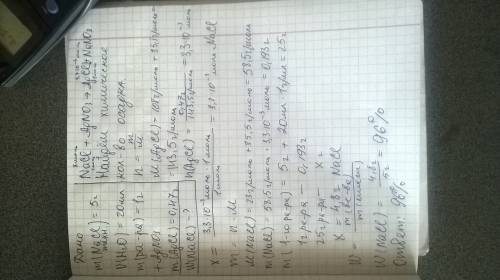 Дано
m(NaCl техн.) = 5г
V(H₂O) = 20мл
m(ра-ра) = 1г
+AgNO₃
m(AgCl) = 0,47г
W(NaCl) - ?
NaCl + AgNO₃ → AgCl↓ + NaNO₃
Найдём химическое
кол-во осадка.
n = m/M
M(AgCl) = 108г/моль + 35,5г/моль =
= 143,5г/моль
n(AgCl) = 0,47г / 143,5г/моль = 3,3·10⁻³ моль
x = 3,3·10⁻³ моль · 1 моль / 1 моль = 3,3·10⁻³ моль NaCl
m = n·M
M(NaCl) = 23г/моль + 35,5г/моль = 58,5г/моль
m(NaCl) = 58,5г/моль · 3,3·10⁻³ моль = 0,193г
m(1-го ра-ра) = 5г + 20мл · 1г/мл = 25г
1г ра-ра — 0,193г
25г ра-ра — x г
x = 4,8г NaCl
W = m(в-ва) / m(смеси)
W(NaCl) = 4,8г / 5г = 96%
Ответ: 96%